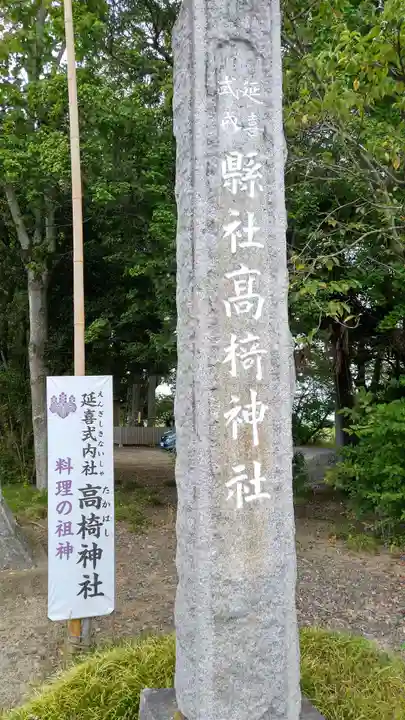 延喜
式内
縣社高椅神社
えんぎしきないしゃ
延喜式内社
たかはし
高椅神社
料理の祖神